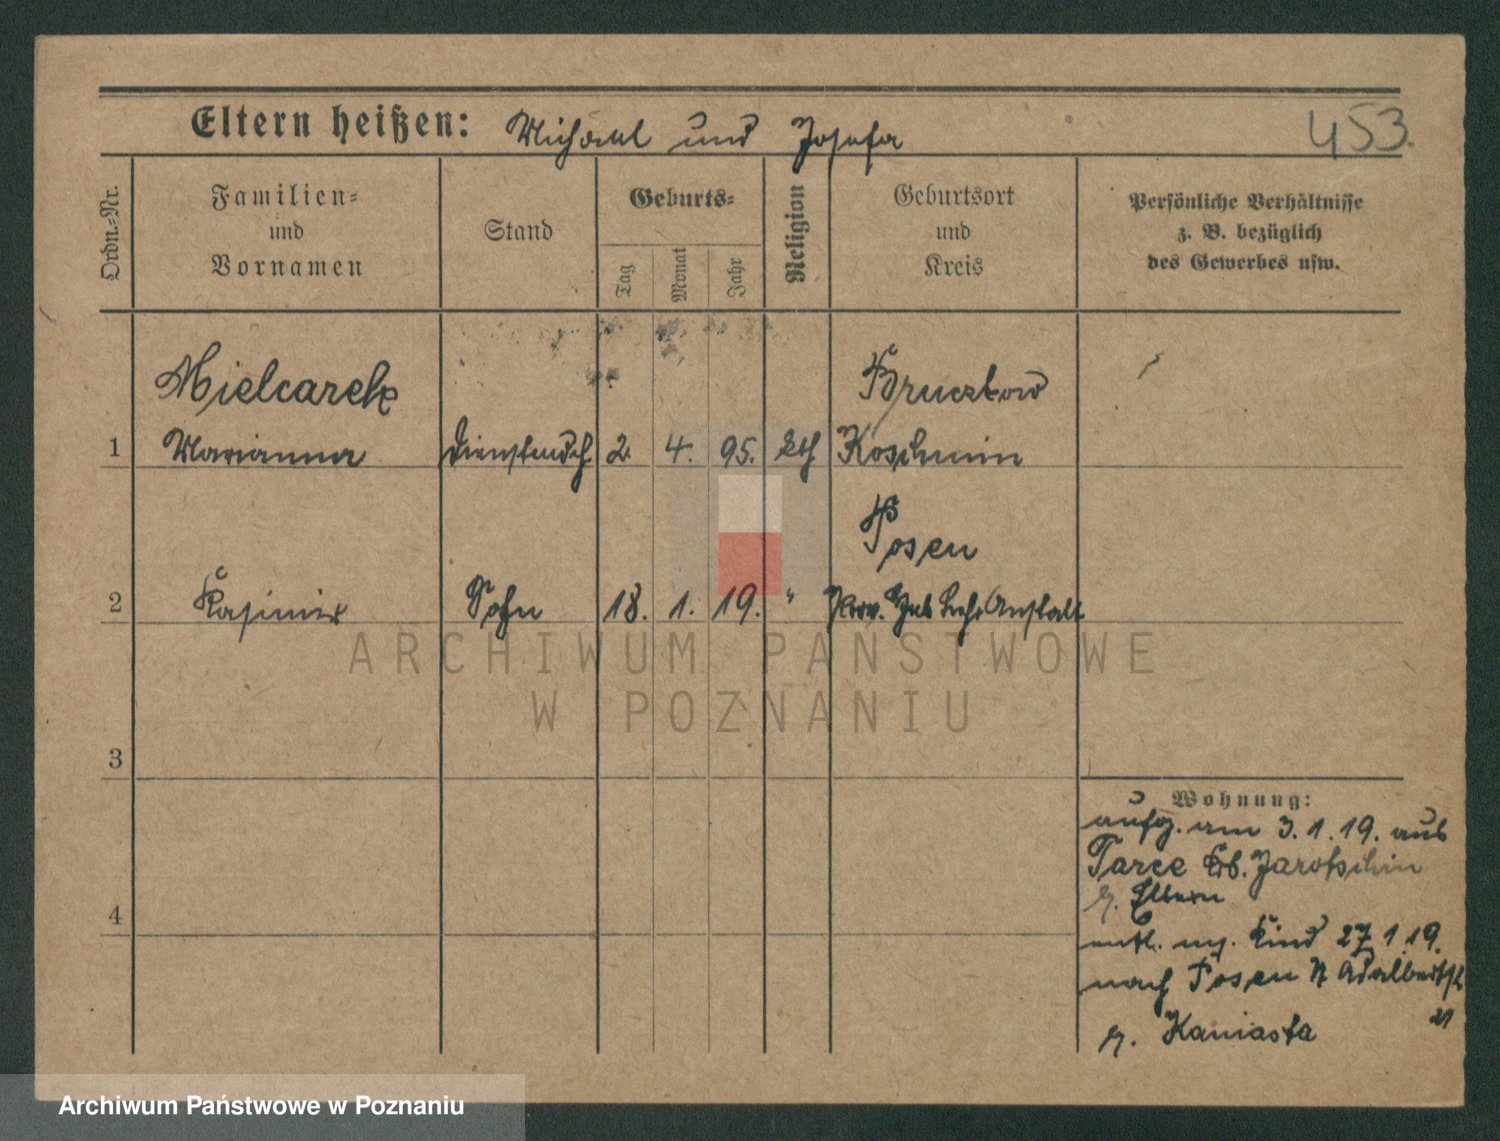 Eltern heißen: Michael und Josefa
453.
Ordn.-Nr.
Familien-
und
Vornamen
Stand
Geburts-
Tag
Monat
Jahr
Religion
Geburtsort
und
Kreis
Persönliche Verhältnisse
z. B. bezüglich
des Gewerbes usw.
Mielcarek
Bruczkow
1 Marianna Dienstmdch. 2. 4. 95. kth Koschmin
Posen
2 Kasimir Sohn 18. 1. 19. " Prov. Heb Lehr Anstalt
ARCHIWUM PAŃSTWOWE
W POZNANIU
3
Wohnung:
aufg. am 3.1.19. aus
Tarce Kr. Jarotschin
z. Eltern
4
entl. m. Kind 27.1.19.
nach Posen Adalbertst
21
z. Kaniasta
Archiwum Państwowe w Poznaniu